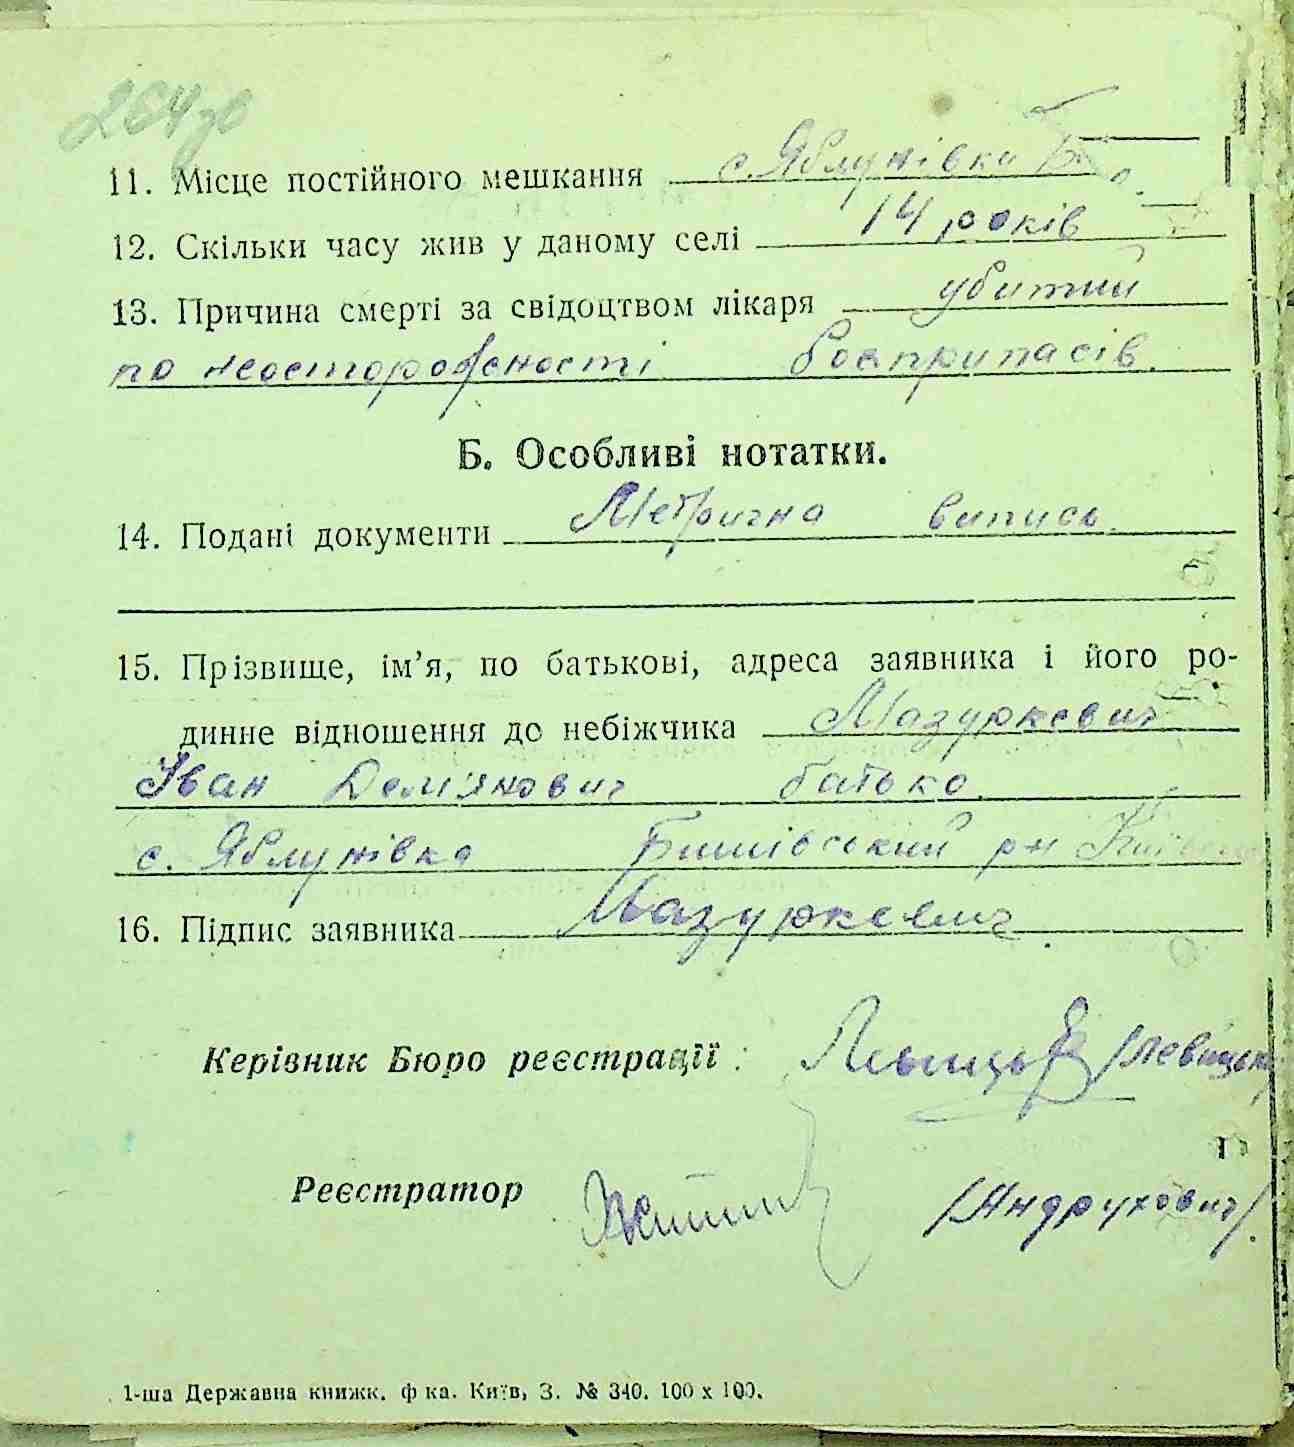 264зв
11. Місце постійного мешкання с. Яблунівка
12. Скільки часу жив у даному селі 14 років
13. Причина смерті за свідоцтвом лікаря убитий
по неосторожності боєприпасів.
Б. Особливі нотатки.
14. Подані документи Метрична випись.
15. Прізвище, ім’я, по батькові, адреса заявника і його ро-
динне відношення до небіжчика Мазуркевич
Іван Дем'янович батько.
с. Яблунівка Бишівський рн Київсько
16. Підпис заявника Мазуркевич.
Керівник Бюро реєстрації: /Левицьк
Реєстратор /Андрухович/.
1-ша Державна книжк. ф ка. Київ, З. № 340. 100 х 100.